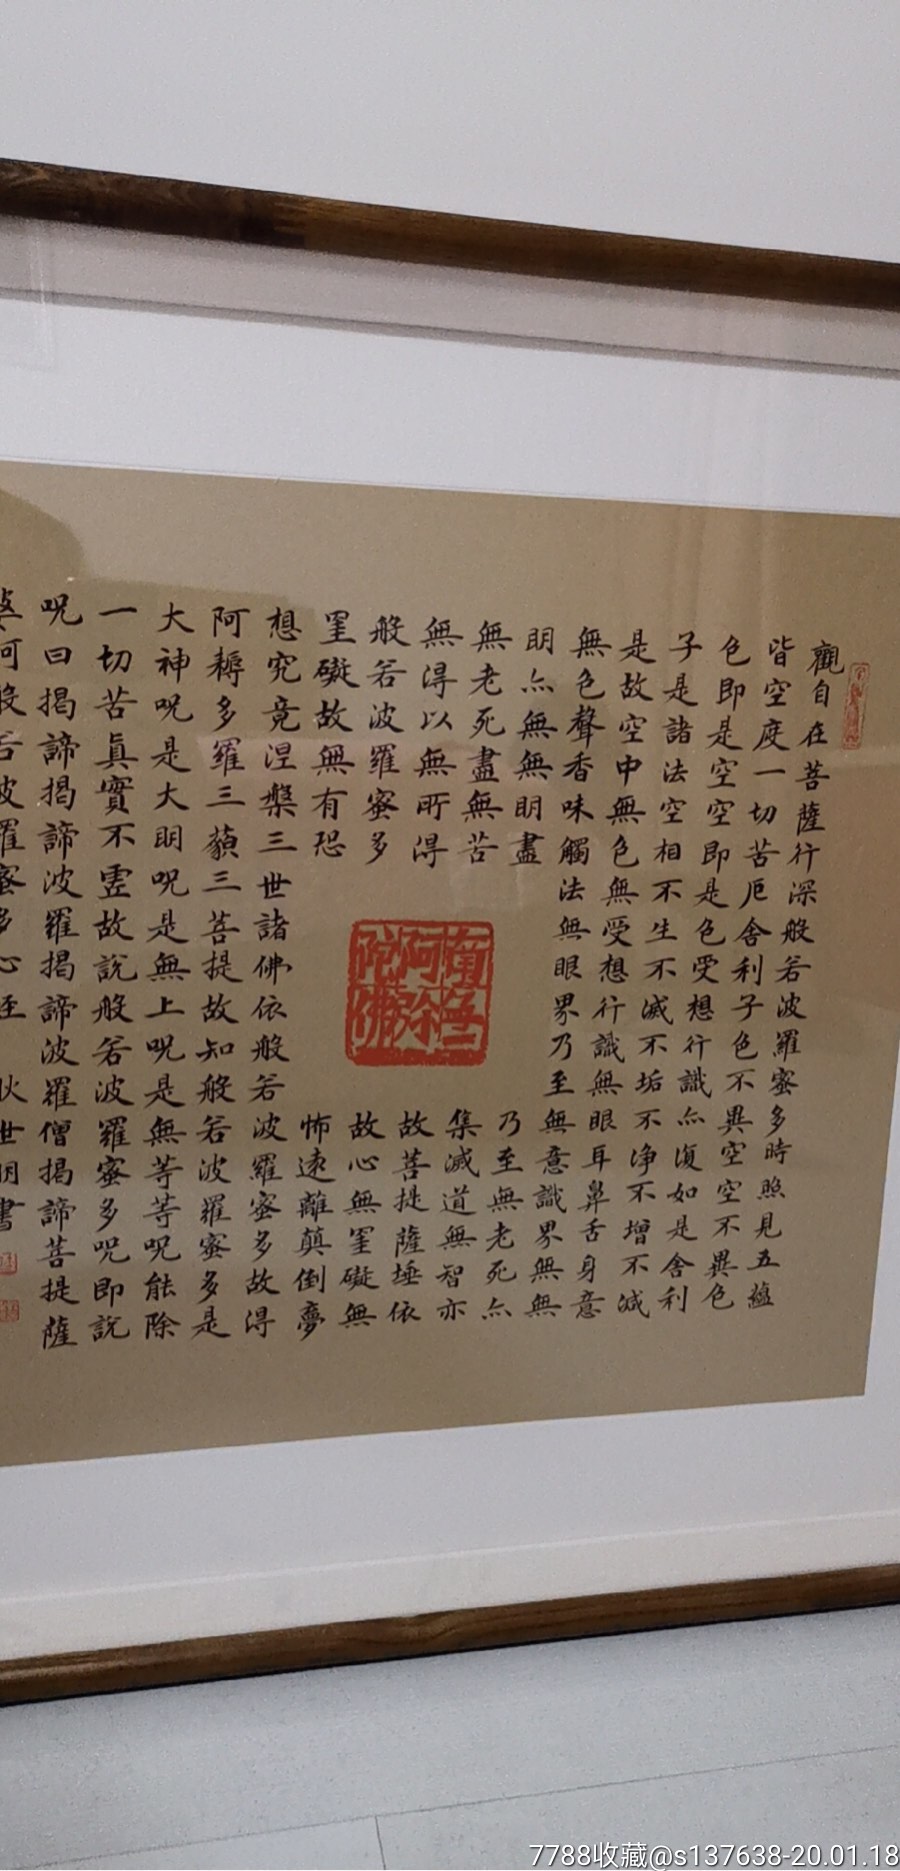 觀自在菩薩行深般若波羅蜜多時照見五蘊
皆空度一切苦厄舍利子色不異空空不異色
色即是空空即是色受想行識亦復如是舍利
子是諸法空相不生不滅不垢不淨不增不減
是故空中無色無受想行識無眼耳鼻舌身意
無色聲香味觸法無眼界乃至無意識界無無
明亦無無明盡 乃至無老死亦
無老死盡無苦 集滅道無智亦
無得以無所得 故菩提薩埵依
般若波羅蜜多 故心無罣礙無
罣礙故無有恐 怖遠離顛倒夢
想究竟涅槃三世諸佛依般若波羅蜜多故得
阿耨多羅三藐三菩提故知般若波羅蜜多是
大神呪是大明呪是無上呪是無等等呪能除
一切苦真實不虛故說般若波羅蜜多呪即說
呪曰揭諦揭諦波羅揭諦波羅僧揭諦菩提薩
婆訶般若波羅蜜多心經 狄世明書
南无阿弥陀佛
7788收藏@s137638-20.01.18